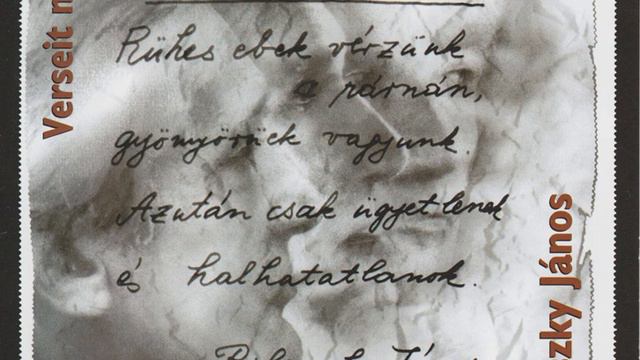 Verseit
Rühes ebek vérzünk
a párnán,
gyönyörűek vagyunk.
Azután csak ügyetlenek
és halhatatlanok.
zky János